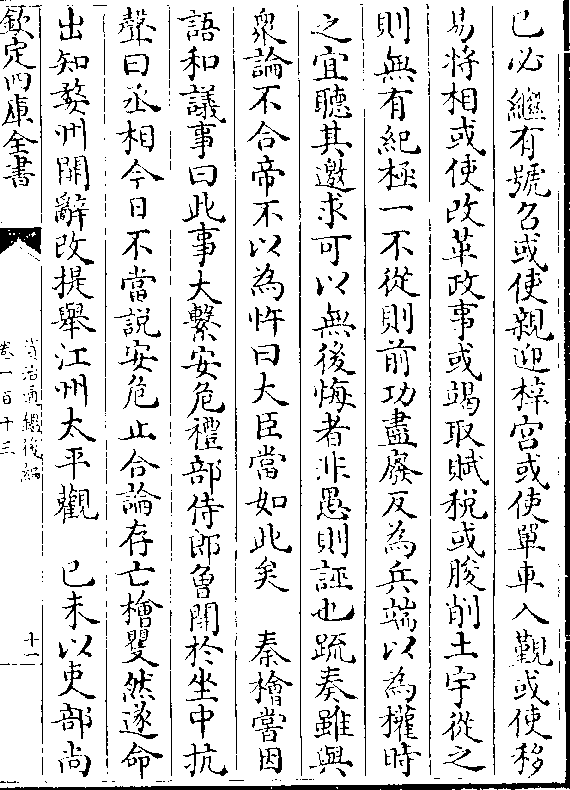 已必繼有號召或使親迎梓宫或使單車入覲或使移
易將相或使改革政事或竭取賦税或朘削土宇從之
則無有紀極一不從則前功盡廢反為兵端以為權時
之宜聽其邀求可以無後悔者非愚則誣也疏奏雖與
衆論不合帝不以為忤曰大臣當如此矣　秦檜嘗因
語和議事曰此事大繫安危禮部侍郎曾開於坐中抗
聲曰丞相今日不當説安危止合論存亡檜矍然遂命
出知婺州開辭改提舉江州太平觀　己未以吏部尚
欽定四庫全書
資治通鑑後編
卷一百十三
十一